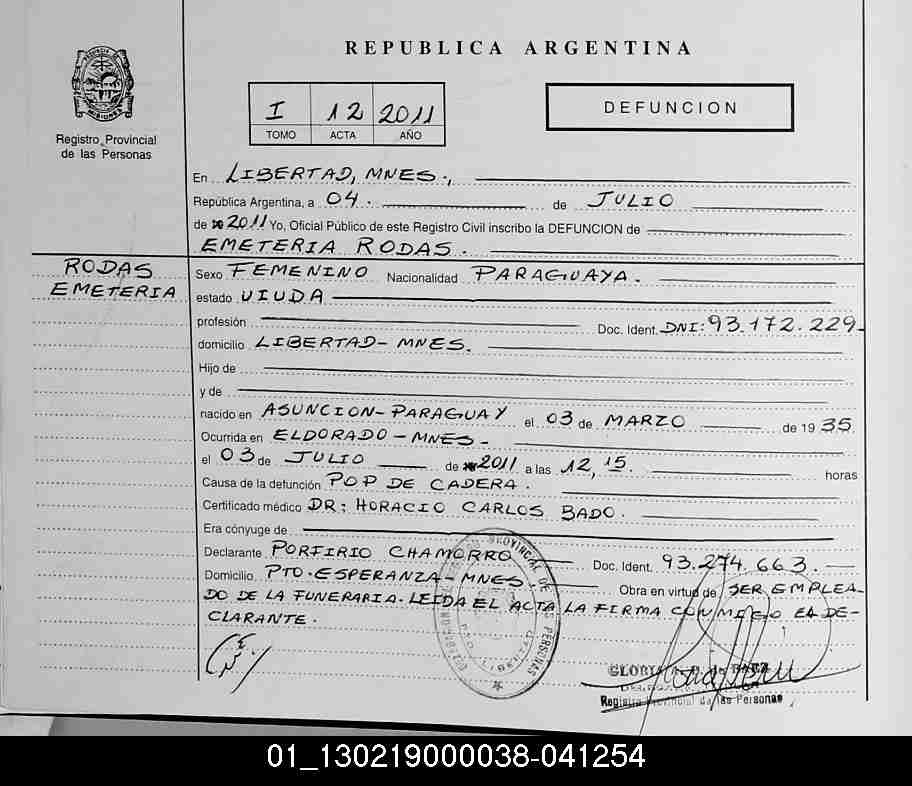 REPUBLICA ARGENTINA
PROVINCIA DE
MISIONES
Registro Provincial
de las Personas
I 12 2011
TOMO ACTA AÑO
DEFUNCION
En LIBERTAD, MNES.,
República Argentina, a 04. de JULIO
de 2011 Yo, Oficial Público de este Registro Civil inscribo la DEFUNCION de
EMETERIA RODAS.
RODAS
EMETERIA
Sexo FEMENINO Nacionalidad PARAGUAYA.
estado VIUDA
profesión Doc. Ident. DNI: 93.172.229
domicilio LIBERTAD-MNES.
Hijo de
y de
nacido en ASUNCION-PARAGUAY el 03 de MARZO de 1935.
Ocurrida en ELDORADO-MNES-
el 03 de JULIO de 2011 a las 12,15. horas
Causa de la defunción POP DE CADERA.
Certificado médico DR: HORACIO CARLOS BADO.
Era cónyuge de
Declarante PORFIRIO CHAMORRO Doc. Ident. 93.274.663.
Domicilio PTO. ESPERANZA-MNES Obra en virtud de SER EMPLEA-
DO DE LA FUNERARIA. LEIDA EL ACTA LA FIRMA CONMIGO EL DE-
CLARANTE.
PROVINCIAL DE LAS PERSONAS
GLORIA de BAEZ
Registro Provincial de las Personas
01_130219000038-041254